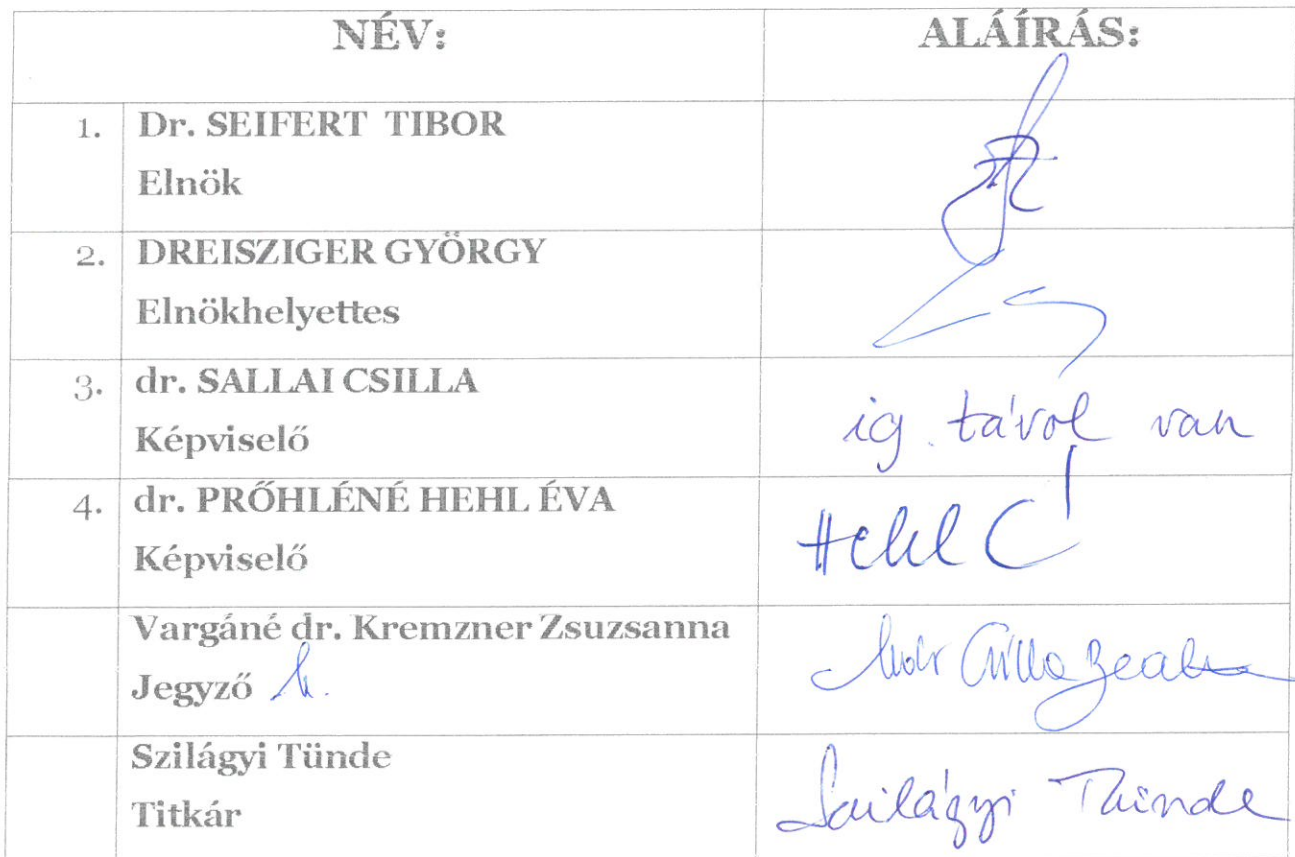 NÉV: ALÁÍRÁS:
1. Dr. SEIFERT TIBOR
Elnök
2. DREISZIGER GYÖRGY
Elnökhelyettes
3. dr. SALLAI CSILLA
Képviselő
ig. távol van
4. dr. PRŐHLÉNÉ HEHL ÉVA
Képviselő
Hehl É
Vargáné dr. Kremzner Zsuzsanna
Jegyző h.
Szilágyi Tünde
Titkár
Szilágyi Tünde